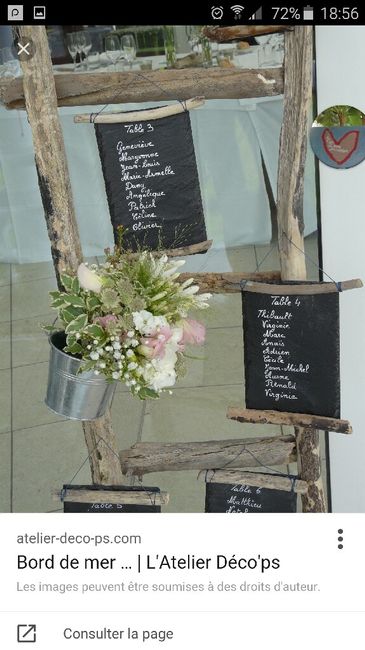 72% 18:56
Table 3
Geneviève
Maryvonne
Jean-Louis
Marie-Armelle
Dany
Angélique
Patrick
Céline
Olivier
Table 4
Thibault
Virginie
Marc
Anaïs
Adrien
Cécile
Jean-Michel
Renald
Virginie
Table 5
Table 6
Matthieu
atelier-deco-ps.com
Bord de mer ... | L'Atelier Déco'ps
Les images peuvent être soumises à des droits d'auteur.
Consulter la page